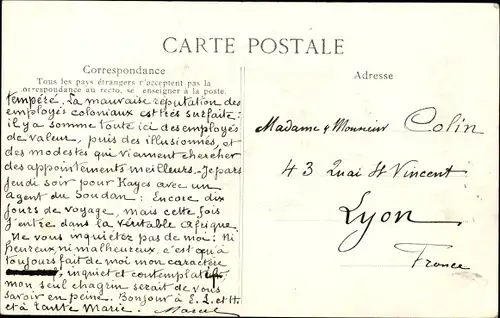 CARTE POSTALE
Correspondance
Tous les pays étrangers n'acceptent pas la
correspondance au recto. se enseigner à la poste.
Adresse
tempéré. La mauvaise réputation des
employés coloniaux est très surfaite:
il y a somme toute ici des employés
de valeur, puis des illusionnés, et
des modestes qui viennent chercher
des appointements meilleurs.- Je pars
jeudi soir pour Kayes avec un
agent du Soudan: Encore dix
jours de voyage, mais cette fois
j'entre dans la véritable Afrique.
Ne vous inquiétez pas de moi: Ni
heureux, ni malheureux, c'est qu'a
toujours fait de moi mon caractère
inquiet et contemplatif,
mon seul chagrin serait de vous
savoir en peine. Bonjour à E. L. et H.
et à tante Marie. Marcel
Madame & Monsieur Colin
43 Quai St Vincent
Lyon
France